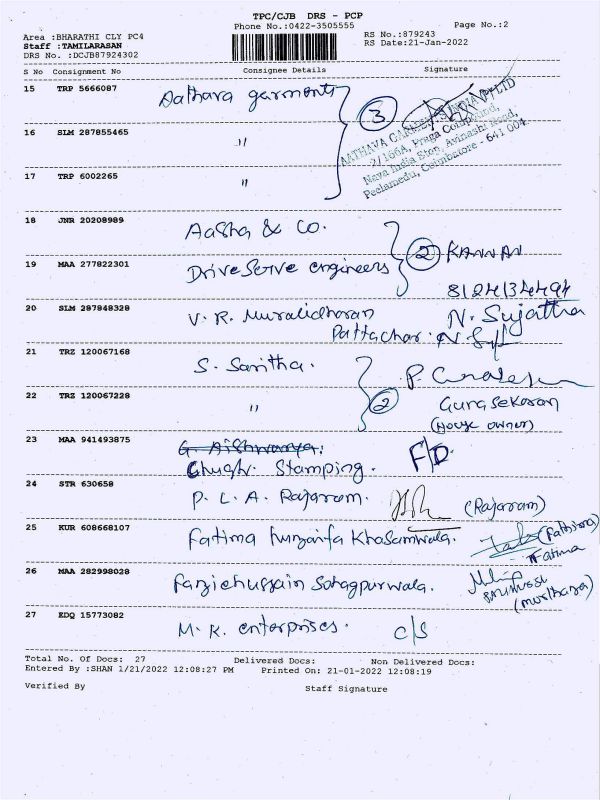 TPC/CJB DRS - PCP
Phone No.:0422-3505555
Page No.:2
Area :BHARATHI CLY PC4
RS No.:879243
Staff :TAMILARASAN
RS Date:21-Jan-2022
DRS No. :DCJB87924302
S No Consignment No Consignee Details Signature
15 TRP 5666087 Aathava garments 3
AATHAVA GARMENTS INDIA PVT LTD
2/106A, Praga Compound,
Nava India Stop, Avinashi Road,
Peelamedu, Coimbatore - 641 004
16 SLM 287855465 "
17 TRP 6002265 "
18 JNR 20208989 Aasha & Co.
19 MAA 277822301 DriveServe engineers 2 KANNAN
20 SLM 287848328 V. R. Muralidharan N. Sujatha
Pattachar.
21 TRZ 120067168 S. Saritha.
22 TRZ 120067228 " 2 Gunasekaran
(House owner)
23 MAA 941493875 G. Aishwarya.
Stamping. F/D.
24 STR 630658 P. L. A. Rajaram. (Rajaram)
25 KUR 608668107 Fatima Khosamwala. (Fathima)
Fatima
26 MAA 282998028 Sohagpurwala.
(Murthaza)
27 EDQ 15773082 M. K. enterprises. C/S
Total No. Of Docs: 27 Delivered Docs: Non Delivered Docs:
Entered By :SHAN 1/21/2022 12:08:27 PM Printed On: 21-01-2022 12:08:19
Verified By Staff Signature